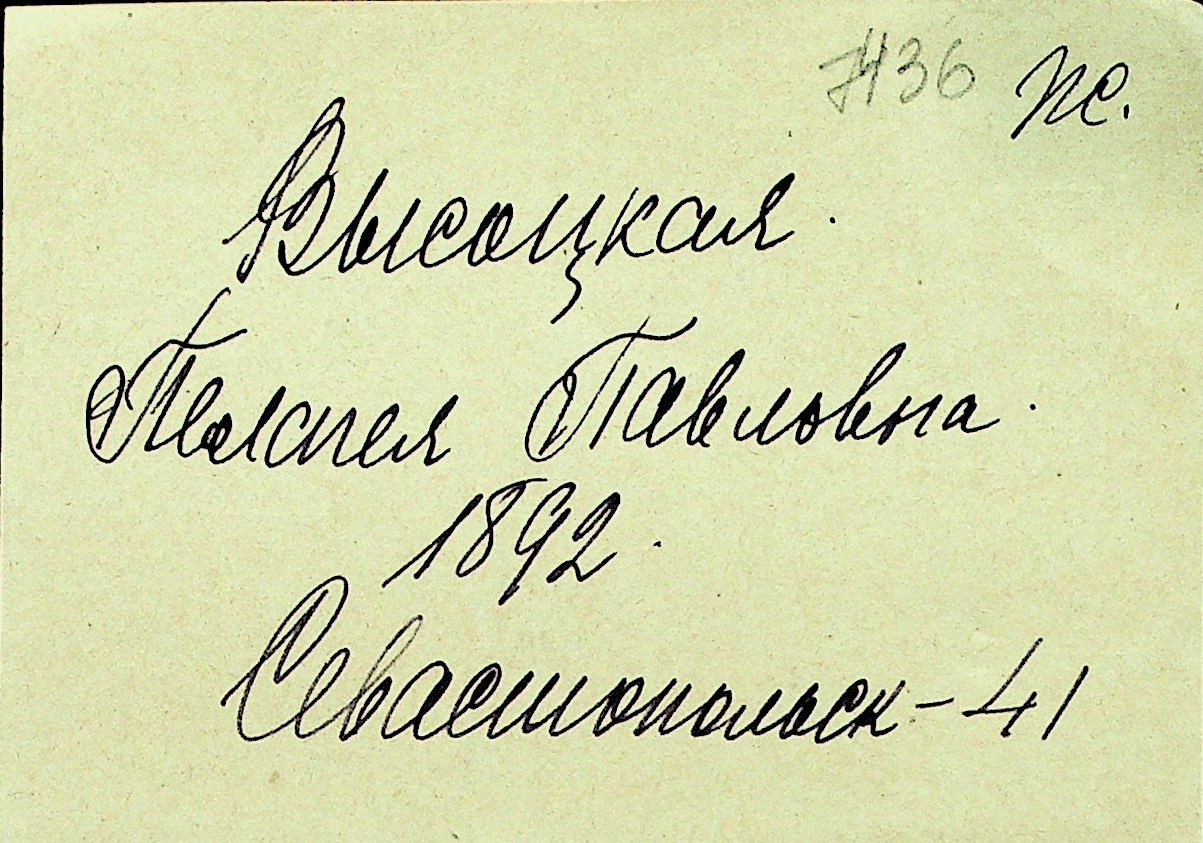 7436
Высоцкая.
Пелагея Павловна.
1892.
Севастопольск-41